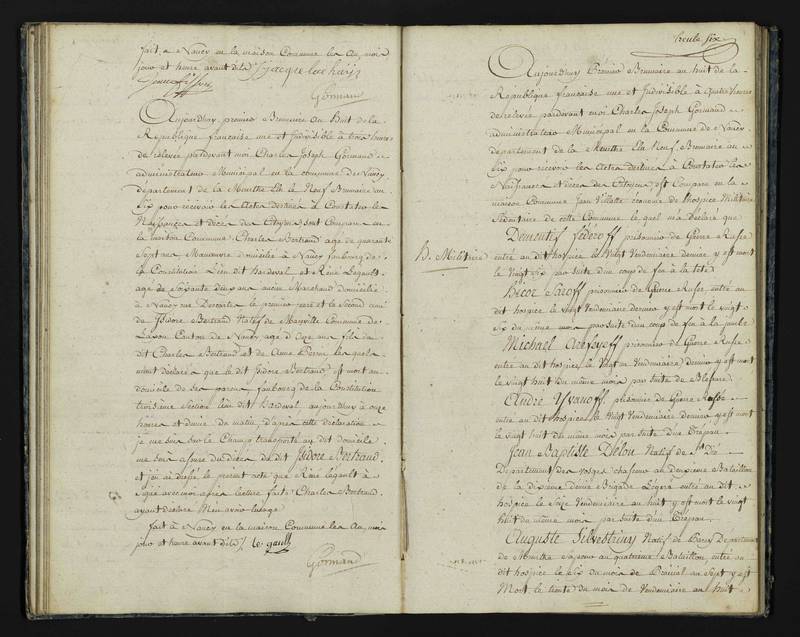 fait, a Nancy en la maison Commune les an, mois
jour et heure avant dits
Gormand
Aujourdhuy, premier Brumaire an Huit de la
République française une et Indivisible à trois heures
de relevée pardevant moi Charles Joseph Gormand
administrateur Municipal en la commune de Nancy,
departement de la Meurthe Elu le Neuf Brumaire an
Six pour recevoir les Actes destinés à Constater les
Naissances et décès des Citoyens, sont Comparus en
la maison Commune Charles Bertrand agé de quarante
Sept ans Manœuvre domicilié à Nancy faubourg de
la Constitution Lieu dit Bardeval et René Legault
agé de soixante deux ans ancien Marchand domicilié
à Nancy rue Descartes le premier pere et le Second ami
de Isidore Bertrand Natif de Commune de
Laxou Canton de Nancy agé d'onze ans fils du
dit Charles Bertrand et de Anne les quels
mont déclaré que le dit Isidore Bertrand est mort au
domicile de ses parens faubourg de la Constitution
troisième Section lieu dit Bardeval aujourdhuy à onze
heures et demie du matin, d'après cette déclaration
je me suis sur le Champ transporté au dit domicile
me suis assuré du Décès du dit Isidore Bertrand
et j'ai dressé le présent acte que René Legault à
signé avec moi après lecture faite Charles Bertrand
ayant declaré N'en avoir l'usage
fait à Nancy en la maison Commune les an, mois
jour et heure avant dits
Gormand
trente Six
Aujourdhuy Premier Brumaire an huit de la
République française une et Indivisible à quatre heures
de relevée pardevant moi Charles Joseph Gormand
administrateur Municipal en la Commune de Nancy
departement de la Meurthe Elu Neuf Brumaire an
Six pour recevoir les Actes destinés à Constater les
Naissances et décès des Citoyens, est Comparu en la
maison Commune Jean Villatte econome de l'hospice Militaire
Sédentaire de cette Commune le quel m'a déclaré que
Dementif fédéroff prisonnier de Guerre Russe
H. Militaire
entré au dit hospice le Vingt Vendemiaire dernier y est mort
le Vingt Six par Suite d'un coup de feu à la tête
Saroff prisonnier de Guerre Russe, entré au
dit hospice le vingt Vendemiaire dernier y est mort le vingt
six du même mois par Suite d'un coup de feu a la jambe
Michaël prisonnier de Guerre Russe
entré au dit hospice le Vingt Vendemiaire dernier y est mort
le vingt huit du même mois par Suite de Blessure
André Yvanoff prisonnier de Guerre Russe
entré au dit hospice le Vingt Vendemiaire dernier y est mort
le vingt huit du même mois par Suite d'un Trépan
Jean Baptiste Delon Natif de St. Dié
Departement des vosges chasseur au deuxieme Bataillon
de la dixieme demie Brigade Légère entré au dit
hospice le Seize Vendemiaire an huit y est mort le vingt
huit du même mois par Suite d'un Trépan
Auguste Silvestriny Natif de Departement
de Meurthe Sapeur au quatrieme Bataillon entré au
dit hospice le Six du mois de Prairial an Sept y est
Mort le trente du mois de Vendemiaire an huit